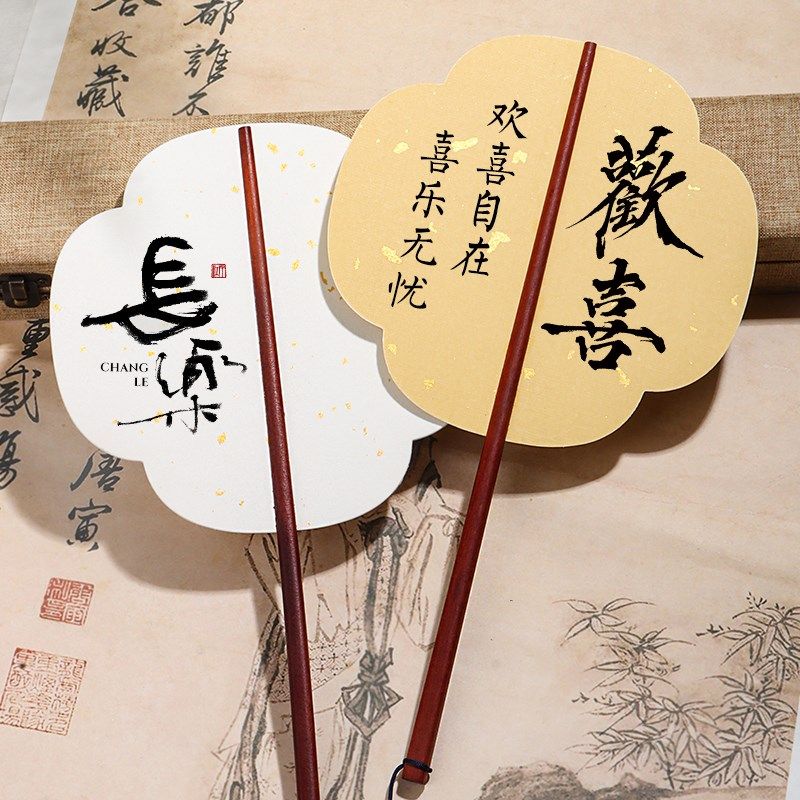 長樂
CHANG
LE
歡喜
欢喜自在
喜乐无忧
都誰不
收藏
重感
唐寅